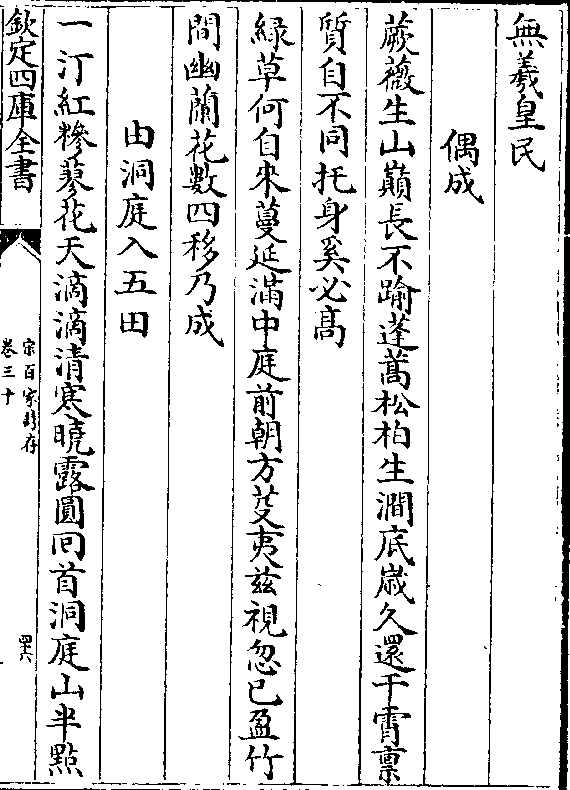 無羲皇民
偶成
蕨薇生山巔長不踰蓬蒿松柏生澗底歲久還干霄禀
質自不同托身奚必高
緑草何自來蔓延滿中庭前朝方芟夷兹視忽已盈竹
間幽蘭花數四移乃成
由洞庭入五田
一汀紅糝蓼花天滴滴清寒曉露圓囘首洞庭山半點
欽定四庫全書
宋百家詩存
卷三十
四六